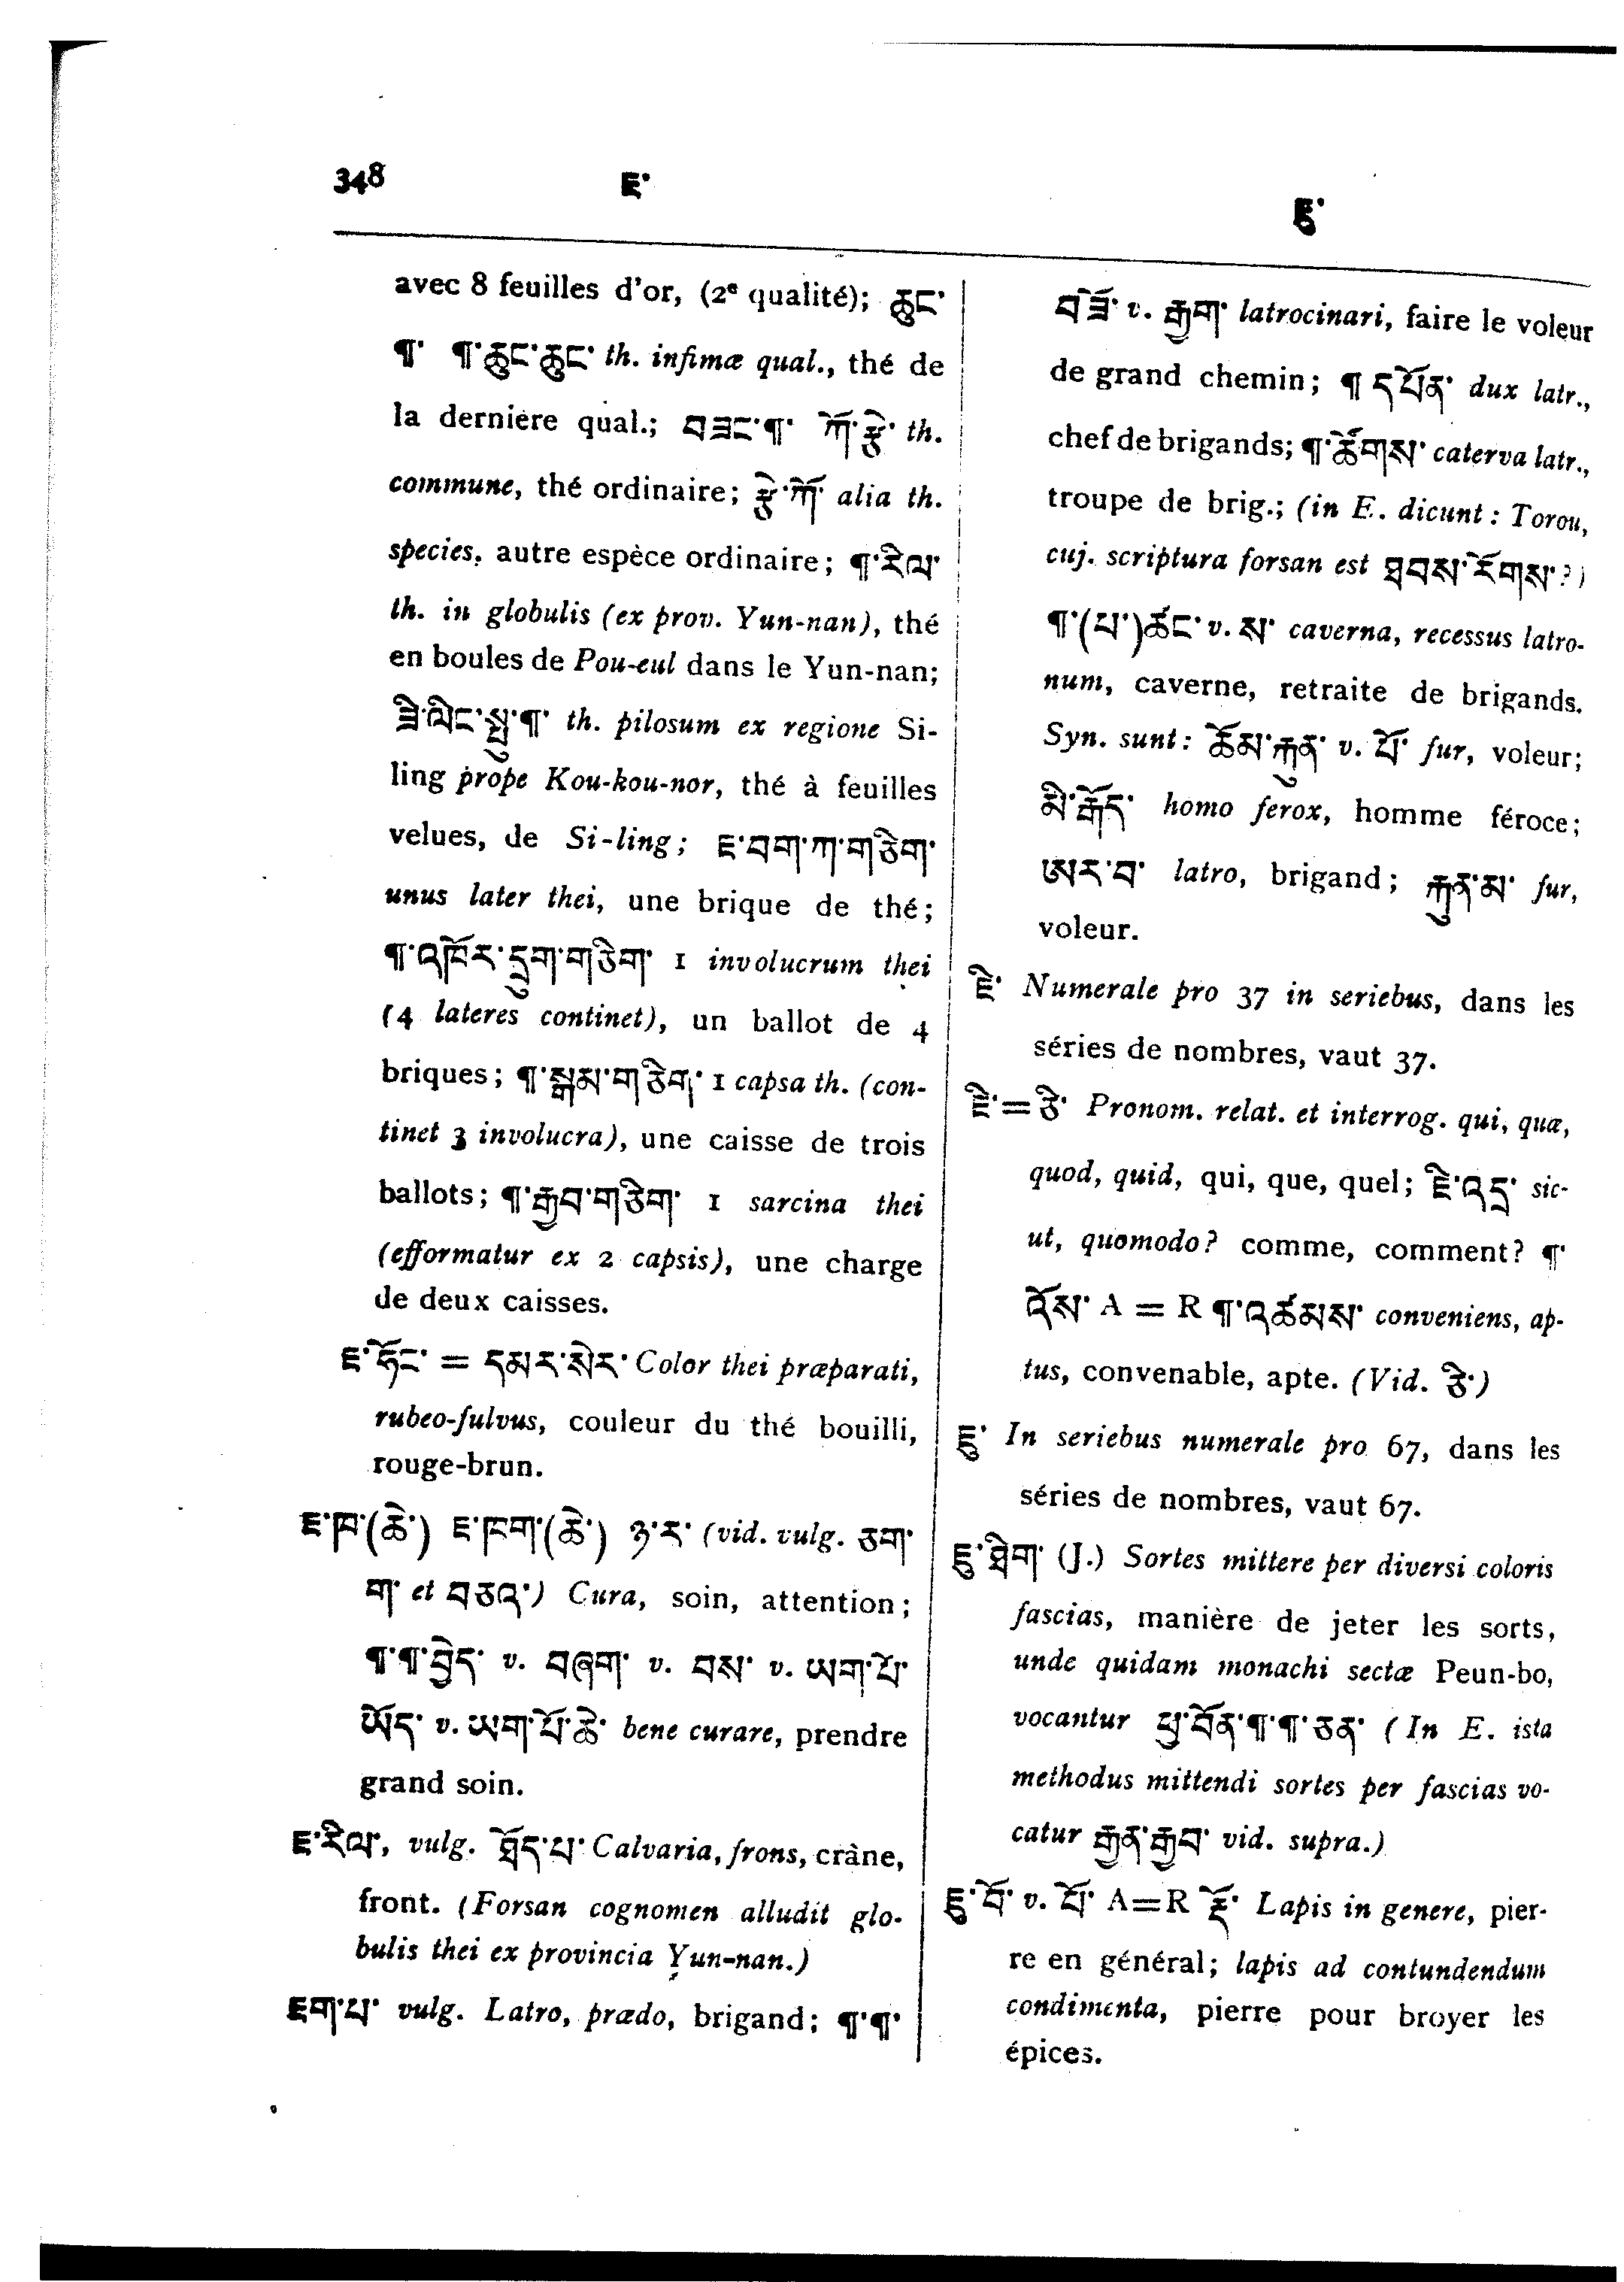 348
ཇ་
ཇུ་
avec 8 feuilles d'or, (2e qualité); ཆུང་
¶་ ¶་ཆུང་ཆུང་ th. infimæ qual., thé de
la dernière qual.; བཟང་¶་ ཀོ་རྩེ་ th.
commune, thé ordinaire; ཀོ་ alia th.
species, autre espèce ordinaire; ¶་རིལ་
th. in globulis (ex prov. Yun-nan), thé
en boules de Pou-eul dans le Yun-nan;
ཟི་ལིང་སྤུ་¶་ th. pilosum ex regione Si-
ling prope Kou-kou-nor, thé à feuilles
velues, de Si-ling; ཇ་བག་ཀ་གཅིག་
unus later thei, une brique de thé;
¶་འཁོར་དྲུག་གཅིག་ 1 involucrum thei
(4 lateres continet), un ballot de 4
briques; ¶་སྒམ་གཅིག་ 1 capsa th. (con-
tinet 3 involucra), une caisse de trois
ballots; ¶་རྒྱབ་གཅིག་ 1 sarcina thei
(efformatur ex 2 capsis), une charge
de deux caisses.
ཇ་ཧོང་ = དམར་སེར་ Color thei præparati,
rubeo-fulvus, couleur du thé bouilli,
rouge-brun.
ཇ་ཁ་(ཆེ་) ཇ་ཁག་(ཆེ་) ཉ་ར་ (vid. vulg. ཅག་
ག་ et བཅའ་) Cura, soin, attention;
¶་¶་བྱེད་ v. བཞག་ v. བས་ v. ཡག་པོ་
ཡོད་ v. ཡག་པོ་ཆེ་ bene curare, prendre
grand soin.
ཇ་རིལ་, vulg. ཐོད་པ་ Calvaria, frons, crâne,
front. (Forsan cognomen alludit glo-
bulis thei ex provincia Yun-nan.)
ཇག་པ་ vulg. Latro, prædo, brigand; ¶་¶་
བཟོ་ v. རྒྱག་ latrocinari, faire le voleur
de grand chemin; ¶ དཔོན་ dux latr.,
chef de brigands; ¶་ཚོགས་ caterva latr.,
troupe de brig.; (in E. dicunt : Torou,
cuj. scriptura forsan est ཐབས་རོགས་?)
¶་(པ་)ཚང་ v. ས་ caverna, recessus latro-
num, caverne, retraite de brigands.
Syn. sunt: ཆོམ་རྐུན་ v. པོ་ fur, voleur;
མི་རྒོད་ homo ferox, homme féroce;
ཨར་བ་ latro, brigand; རྐུན་མ་ fur,
voleur.
ཇི་ Numerale pro 37 in seriebus, dans les
séries de nombres, vaut 37.
ཇི་ = ཅི་ Pronom. relat. et interrog. qui, quæ,
quod, quid, qui, que, quel; ཇི་འདྲ་ sic-
ut, quomodo? comme, comment? ¶་
འོས་ A = R ¶་འཚམས་ conveniens, ap-
tus, convenable, apte. (Vid. ཅི་)
ཇུ་ In seriebus numerale pro 67, dans les
séries de nombres, vaut 67.
ཇུ་ཐིག་ (J.) Sortes mittere per diversi coloris
fascias, manière de jeter les sorts,
unde quidam monachi sectæ Peun-bo,
vocantur ཕྱྭ་བོན་¶་¶་ཅན་ (In E. ista
methodus mittendi sortes per fascias vo-
catur རྒྱན་རྒྱབ་ vid. supra.)
ཇུ་བོ་ v. པོ་ A=R རྡོ་ Lapis in genere, pier-
re en général; lapis ad contundendum
condimenta, pierre pour broyer les
épices.